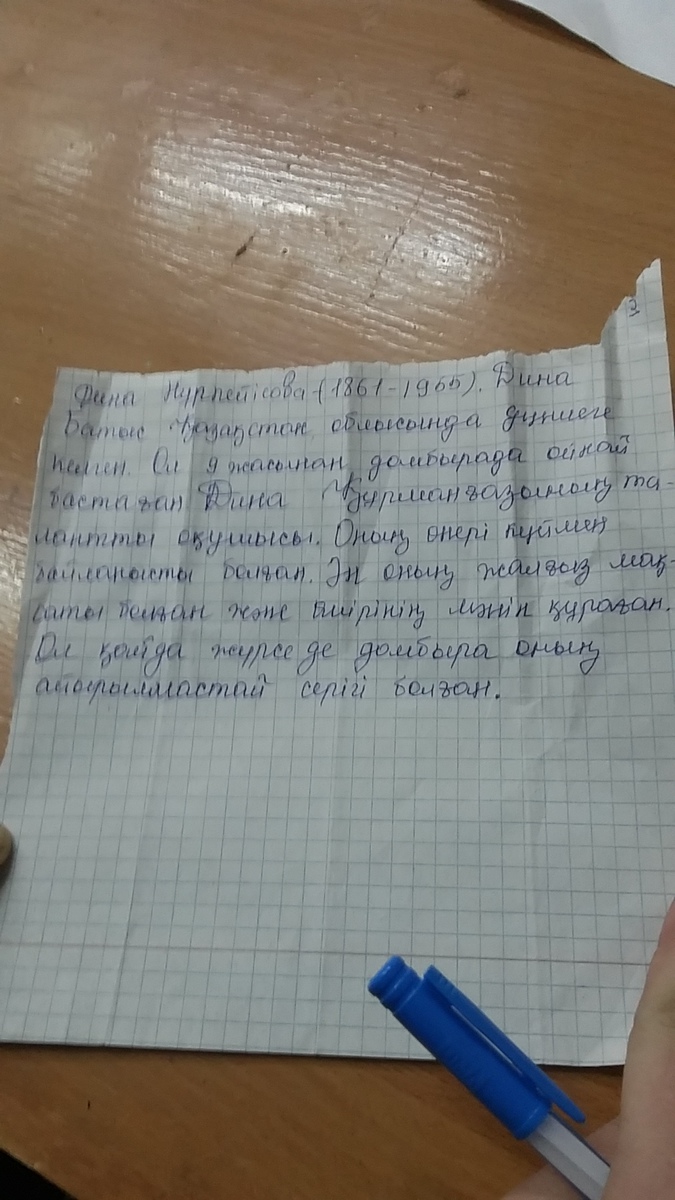 3
Дина Нурпейісова (1861-1955). Дина
Батыс Қазақстан облысында дүниеге
келген. Ол 9 жасынан домбырада ойнай
бастаған Дина Құрманғазының та-
лантты оқушысы. Оның өнері күймен
байланысты болған. Ән оның жалғыз мақ-
саты болған және өмірінің мәнін құраған.
Ол қайда жүрсе де домбыра оның
айырылмастай серігі болған.